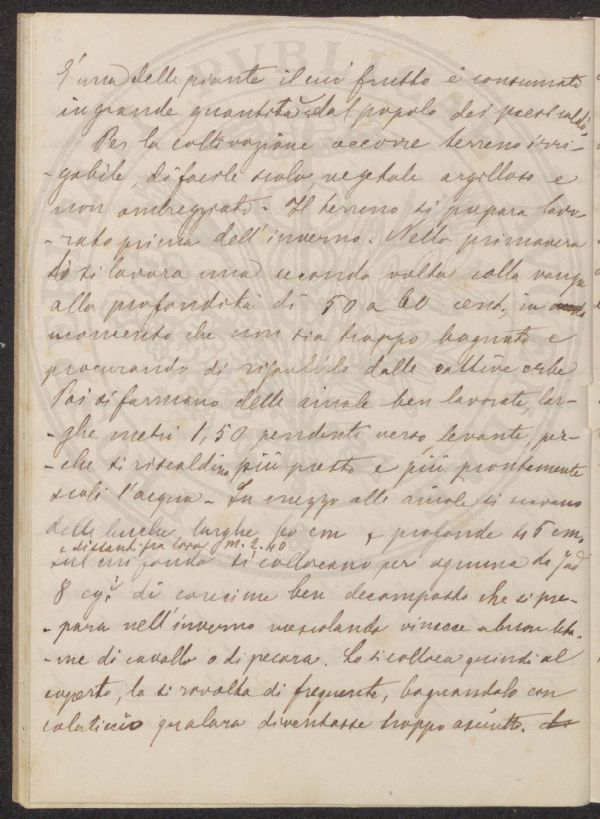 È una delle piante il cui frutto è consumato
in grande quantità dal popolo dei paesi caldi.
Per la coltivazione occorre terreno irri-
-gabile, di facile scolo, vegetale argilloso e
non ombreggiato. Il terreno si prepara lavo-
-rato prima dell'inverno. Nella primavera
si lavora una seconda volta colla vanga
alla profondità di 50 a 60 cent., in
momento che non sia troppo bagnato e
procurando di ripulirlo dalle cattive erbe
Poi si formano delle aiuole ben lavorate, lar-
-ghe metri 1,50 pendenti verso levante, per-
-che si riscaldino più presto e più prontamente
scoli l'acqua. In mezzo alle aiuole si scavano
delle buche larghe 50 cm e profonde 45 cm,
e distanti fra loro m. 2.40
sul cui fondo si collocano per ognuna da 7 ad
8 cg.i di concime ben decomposto che si pre-
-para nell'inverno mescolando vinacce a buon leta-
-me di cavallo o di pecora. Lo si colloca quindi al
coperto, lo si rovolta di frequente, bagnandolo con
colaticcio qualora diventasse troppo asciutto.